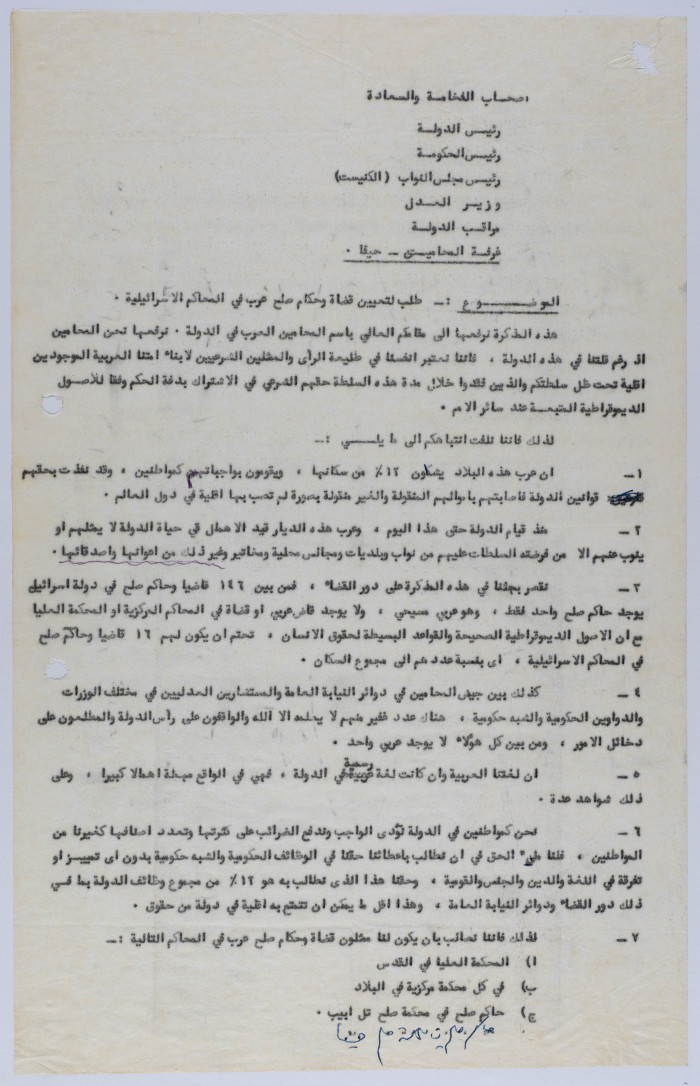 اصحاب الفخامة والسعادة
رئيس الدولة
رئيس الحكومة
رئيس مجلس النواب (الكنيست)
وزيـر العـدل
مراقب الدولة
غرفة المحاميـن ــ حيفا ٠
الموضـــوع :ــ طلب لتعيين قضاة وحكام صلح عرب في المحاكم الاسرائيلية ٠
هذه المذكرة نرفعها الى مقامكم العالي باسم المحامين العرب في الدولة ٠ نرفعها نحن المحامين
اذ رغم قلتنا في هذه الدولة ، فاننا نعتبر انفسنا في طليعة الرأى والممثلين الشرعيين لابناء امتنا العربية الموجودين
اقلية تحت ظل سلطتكم والذين فقدوا خلال مدة هذه السلطة حقهم الشرعي في الاشتراك بدفة الحكم وفقا للأصول
الديموقراطية المتبعـة عند سائر الامم ٠
لذلك فاننا نلفت انتباهكم الى ما يلـــي :ــ
١ــ ان عرب هذه البلاد يشكلون ١٢٪ من سكانها ، ويقومون بواجباتهم كمواطنين ، وقد نفذت بحقهم
قوانين الدولة فأصابتهم باموالهم المنقولة والغير منقولة بصورة لم تصب بها اقلية في دول العالم ٠
٢ــ منذ قيام الدولة حتى هذا اليوم ، وعرب هذه الديار قيد الاهمال في حياة الدولة لا يمثلهم او
ينوب عنهم الا من فرضته السلطات عليهم من نواب وبلديات ومجالس محلية ومخاتير وغير ذلك من اعوانها واصدقائها ٠
٣ــ نقصر بحثنا في هذه المذكرة على دور القضاء ، فمن بين ١٤٦ قاضيا وحاكم صلح في دولة اسرائيل
يوجد حاكم صلح واحد فقط ، وهو عربي مسيحي ، ولا يوجد قاض عربي او قضاة في المحاكم المركزية او المحكمة العليا
مع ان الاصول الديموقراطية الصحيحة والقواعد البسيطة لحقوق الانسان ، تحتم ان يكون لهم ١٦ قاضيا وحاكم صلح
في المحاكم الاسرائيلية ، اى بنسبة عددهم الى مجموع السكان ٠
٤ــ كذلك بين جيش المحامين في دوائر النيابة العامة والمستشارين العدليين في مختلف الوزرات
والدواوين الحكومية والشبه حكومية ، هناك عدد غفير منهم لا يعلمه الا الله والواقفون على رأس الدولة والمطلعون على
دخائل الامور ، ومن بين كل هؤلاء لا يوجد عربي واحد ٠
٥ــ ان لغتنا العربية وان كانت لغة رسمية في الدولة ، فهي في الواقع مهملة اهمالا كبيرا ، وعلى
ذلك شواهد عدة ٠
٦ــ نحن كمواطنين في الدولة نؤدى الواجب وندفع الضرائب على كثرتها وتعدد اصنافها كغيرنا من
المواطنين ، فلنا ملء الحق في ان نطالب باعطائنا حقنا في الوظائف الحكومية والشبه حكومية بدون اى تمييـز او
تفرقة في اللغة والدين والجنس والقومية ، وحقنا هذا الذى نطالب به هو ١٢٪ من مجموع وظائف الدولة بما فـي
ذلك دور القضاء ودوائر النيابة العامة ، وهذا اقل ما يمكن ان تتمتع به اقلية في دولة من حقوق ٠
٧ــ لذلك فاننا نطالب بان يكون لنا ممثلون قضاة وحكام صلح عرب في المحاكم التالية :ــ
ا) المحكمة العليا في القدس
ب) في كل محكمة مركزية في البلاد
ج) حاكم صلح في محكمة صلح تل ابيب ٠
حاكم صلح في محكمة صلح حيفا